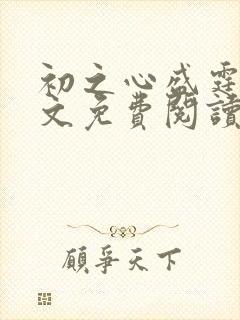 初之心盛霆
文免費閱讀
顧爭天下